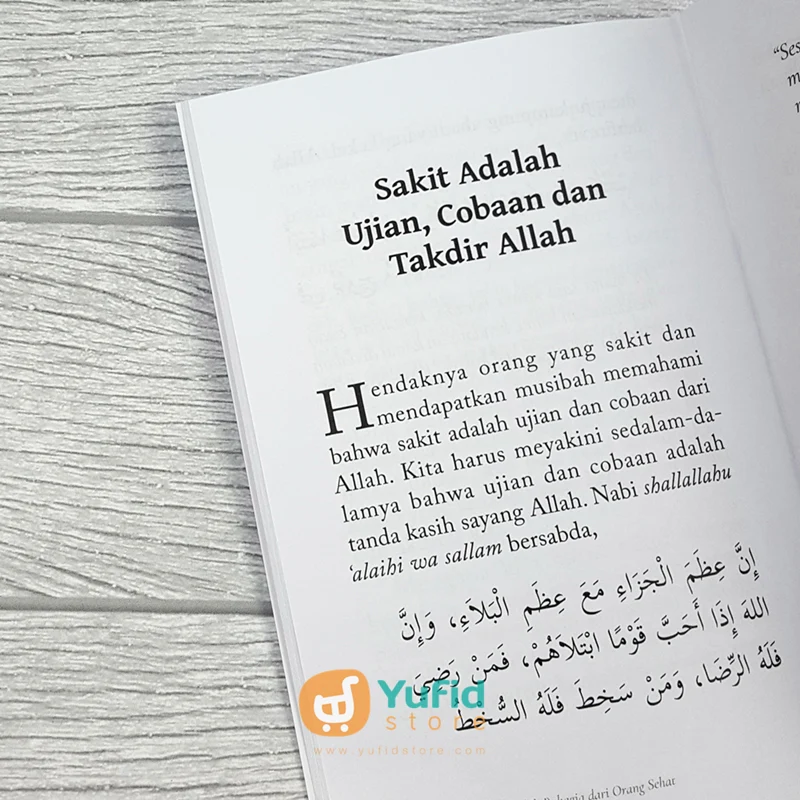 Sakit Adalah
Ujian, Cobaan dan
Takdir Allah
Hendaknya orang yang sakit dan
mendapatkan musibah memahami
bahwa sakit adalah ujian dan cobaan dari
Allah. Kita harus meyakini sedalam-da-
lamya bahwa ujian dan cobaan adalah
tanda kasih sayang Allah. Nabi shallallahu
‘alaihi wa sallam bersabda,
إِنَّ عِظَمَ الْجَزَاءِ مَعَ عِظَمِ الْبَلَاءِ، وَإِنَّ
اللهَ إِذَا أَحَبَّ قَوْمًا ابْتَلَاهُمْ، فَمَنْ رَضِيَ
فَلَهُ الرِّضَا، وَمَنْ سَخِطَ فَلَهُ السُّخْطُ
Yufid
store
www.yufidstore.com
dari Orang Sehat
“Ses